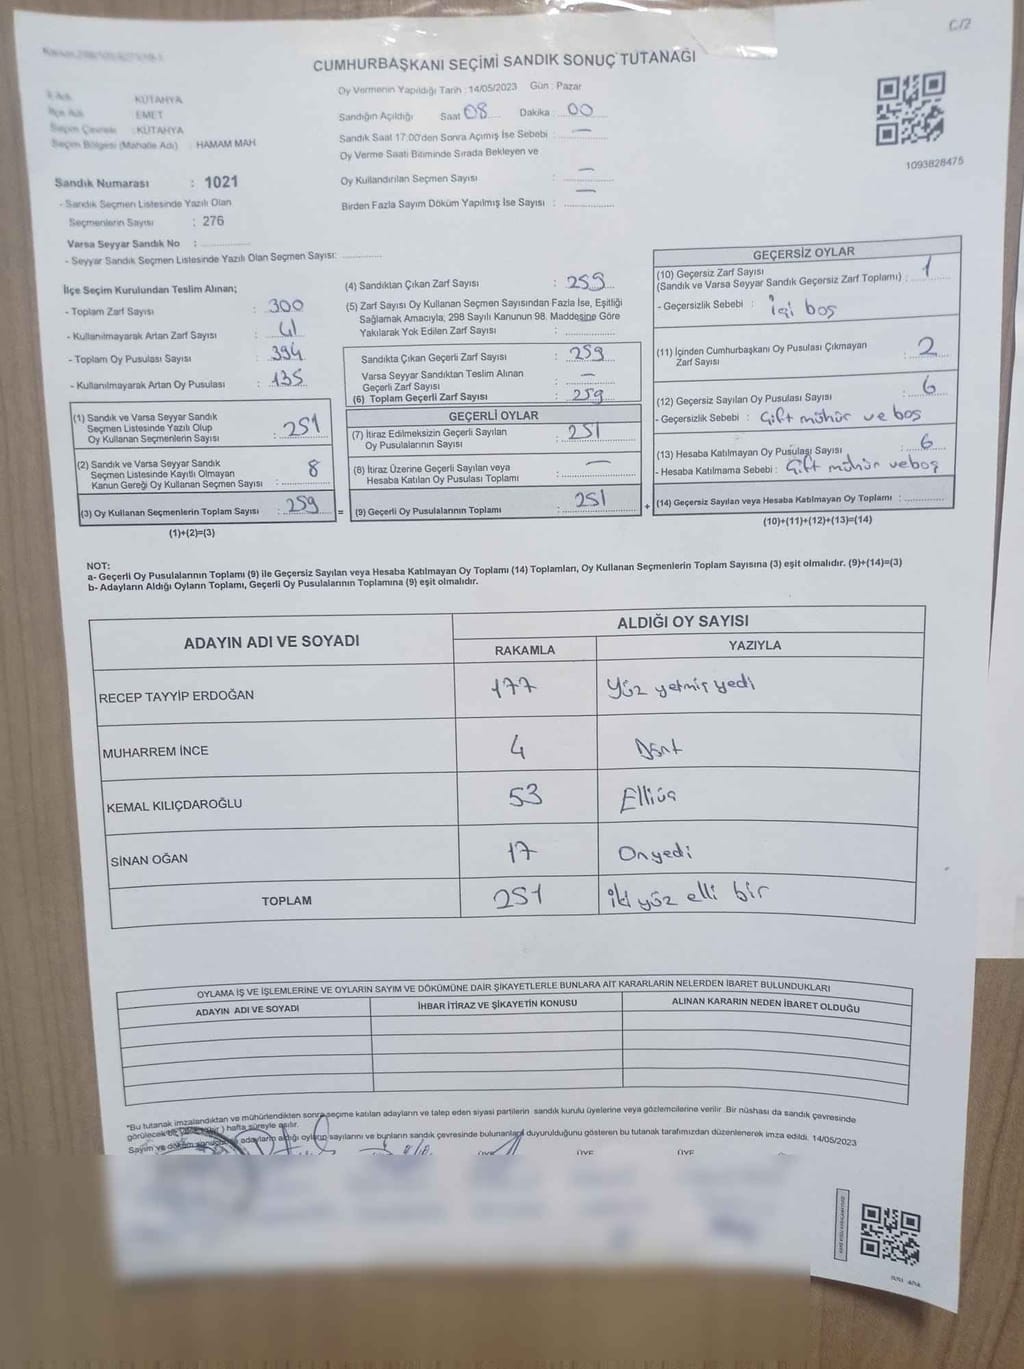 C/2
CUMHURBAŞKANI SEÇİMİ SANDIK SONUÇ TUTANAĞI
Oy Vermenin Yapıldığı Tarih : 14/05/2023 Gün : Pazar
Sandığın Açıldığı Saat 08 Dakika : 00
Sandık Saat 17:00'den Sonra Açımış İse Sebebi : —
Oy Verme Saati Bitiminde Sırada Bekleyen ve
Oy Kullandırılan Seçmen Sayısı : —
Birden Fazla Sayım Döküm Yapılmış İse Sayısı : —
1093828475
İl Adı : KÜTAHYA
İlçe Adı : EMET
Seçim Çevresi : KÜTAHYA
Seçim Bölgesi (Mahalle Adı) : HAMAM MAH
Sandık Numarası : 1021
- Sandık Seçmen Listesinde Yazılı Olan
Seçmenlerin Sayısı : 276
Varsa Seyyar Sandık No :
- Seyyar Sandık Seçmen Listesinde Yazılı Olan Seçmen Sayısı:
İlçe Seçim Kurulundan Teslim Alınan;
- Toplam Zarf Sayısı : 300
- Kullanılmayarak Artan Zarf Sayısı : 41
- Toplam Oy Pusulası Sayısı : 394
- Kullanılmayarak Artan Oy Pusulası : 135
(1) Sandık ve Varsa Seyyar Sandık
Seçmen Listesinde Yazılı Olup
Oy Kullanan Seçmenlerin Sayısı : 251
(2) Sandık ve Varsa Seyyar Sandık
Seçmen Listesinde Kayıtlı Olmayan
Kanun Gereği Oy Kullanan Seçmen Sayısı : 8
(3) Oy Kullanan Seçmenlerin Toplam Sayısı : 259
(1)+(2)=(3)
(4) Sandıktan Çıkan Zarf Sayısı : 259
(5) Zarf Sayısı Oy Kullanan Seçmen Sayısından Fazla İse, Eşitliği
Sağlamak Amacıyla, 298 Sayılı Kanunun 98. Maddesine Göre
Yakılarak Yok Edilen Zarf Sayısı :
Sandıkta Çıkan Geçerli Zarf Sayısı : 259
Varsa Seyyar Sandıktan Teslim Alınan
Geçerli Zarf Sayısı : —
(6) Toplam Geçerli Zarf Sayısı : 259
GEÇERLİ OYLAR
(7) İtiraz Edilmeksizin Geçerli Sayılan
Oy Pusulalarının Sayısı : 251
(8) İtiraz Üzerine Geçerli Sayılan veya
Hesaba Katılan Oy Pusulası Toplamı : —
= (9) Geçerli Oy Pusulalarının Toplamı : 251
GEÇERSİZ OYLAR
(10) Geçersiz Zarf Sayısı
(Sandık ve Varsa Seyyar Sandık Geçersiz Zarf Toplamı) : 1
- Geçersizlik Sebebi : İçi boş
(11) İçinden Cumhurbaşkanı Oy Pusulası Çıkmayan
Zarf Sayısı : 2
(12) Geçersiz Sayılan Oy Pusulası Sayısı : 6
- Geçersizlik Sebebi : Çift mühür ve boş
(13) Hesaba Katılmayan Oy Pusulaşı Sayısı : 6
- Hesaba Katılmama Sebebi : Çift mühür ve boş
+ (14) Geçersiz Sayılan veya Hesaba Katılmayan Oy Toplamı :
(10)+(11)+(12)+(13)=(14)
NOT:
a- Geçerli Oy Pusulalarının Toplamı (9) ile Geçersiz Sayılan veya Hesaba Katılmayan Oy Toplamı (14) Toplamları, Oy Kullanan Seçmenlerin Toplam Sayısına (3) eşit olmalıdır. (9)+(14)=(3)
b- Adayların Aldığı Oyların Toplamı, Geçerli Oy Pusulalarının Toplamına (9) eşit olmalıdır.
ADAYIN ADI VE SOYADI ALDIĞI OY SAYISI
RAKAMLA YAZIYLA
RECEP TAYYİP ERDOĞAN 177 Yüz yetmiş yedi
MUHARREM İNCE 4 Dört
KEMAL KILIÇDAROĞLU 53 Elliüç
SİNAN OĞAN 17 Onyedi
TOPLAM 251 iki yüz elli bir
OYLAMA İŞ VE İŞLEMLERİNE VE OYLARIN SAYIM VE DÖKÜMÜNE DAİR ŞİKAYETLERLE BUNLARA AİT KARARLARIN NELERDEN İBARET BULUNDUKLARI
ADAYIN ADI VE SOYADI İHBAR İTİRAZ VE ŞİKAYETİN KONUSU ALINAN KARARIN NEDEN İBARET OLDUĞU
*Bu tutanak imzalandıktan ve mühürlendikten sonra seçime katılan adayların ve talep eden siyasi partilerin sandık kurulu üyelerine veya gözlemcilerine verilir. Bir nüshası da sandık çevresinde
görülecek bir hafta süreyle asılır.
Sayım ve döküm sonuçları adayların aldığı oyların sayılarını ve bunların sandık çevresinde bulunanlara duyurulduğunu gösteren bu tutanak tarafımızdan düzenlenerek imza edildi. 14/05/2023
ÜYE ÜYE ÜYE